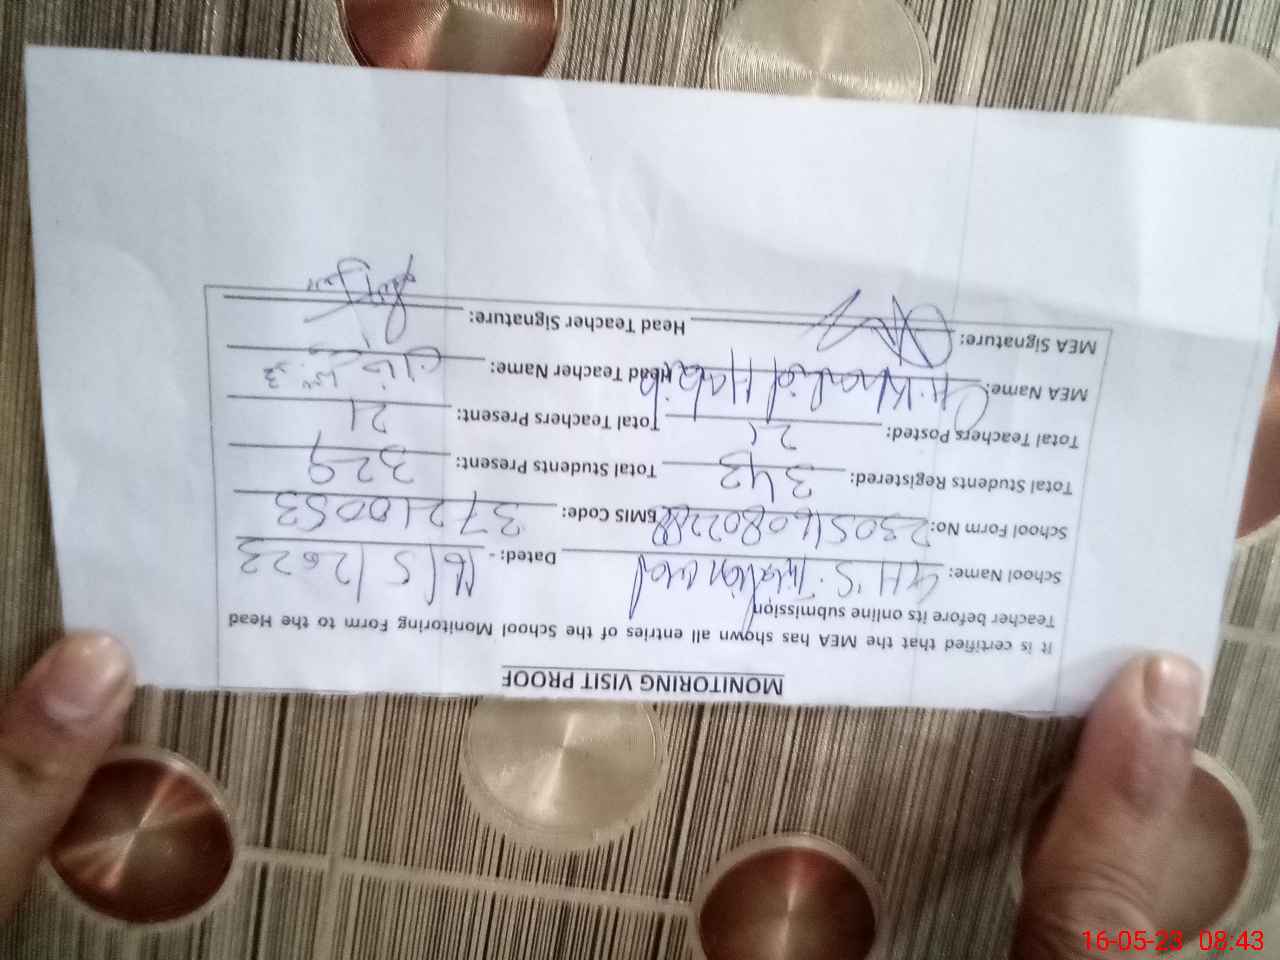 MONITORING VISIT PROOF
It is certified that the MEA has shown all entries of the School Monitoring Form to the Head
Teacher before its online submission
School Name: GHS. Dated: - 16/5/2023
School Form No: EMIS Code: 37210053
Total Students Registered: 343 Total Students Present: 329
Total Teachers Posted: 21 Total Teachers Present: 21
MEA Name: Ch. Khalid Habib Head Teacher Name:
MEA Signature: Head Teacher Signature:
16-05-23 08:43